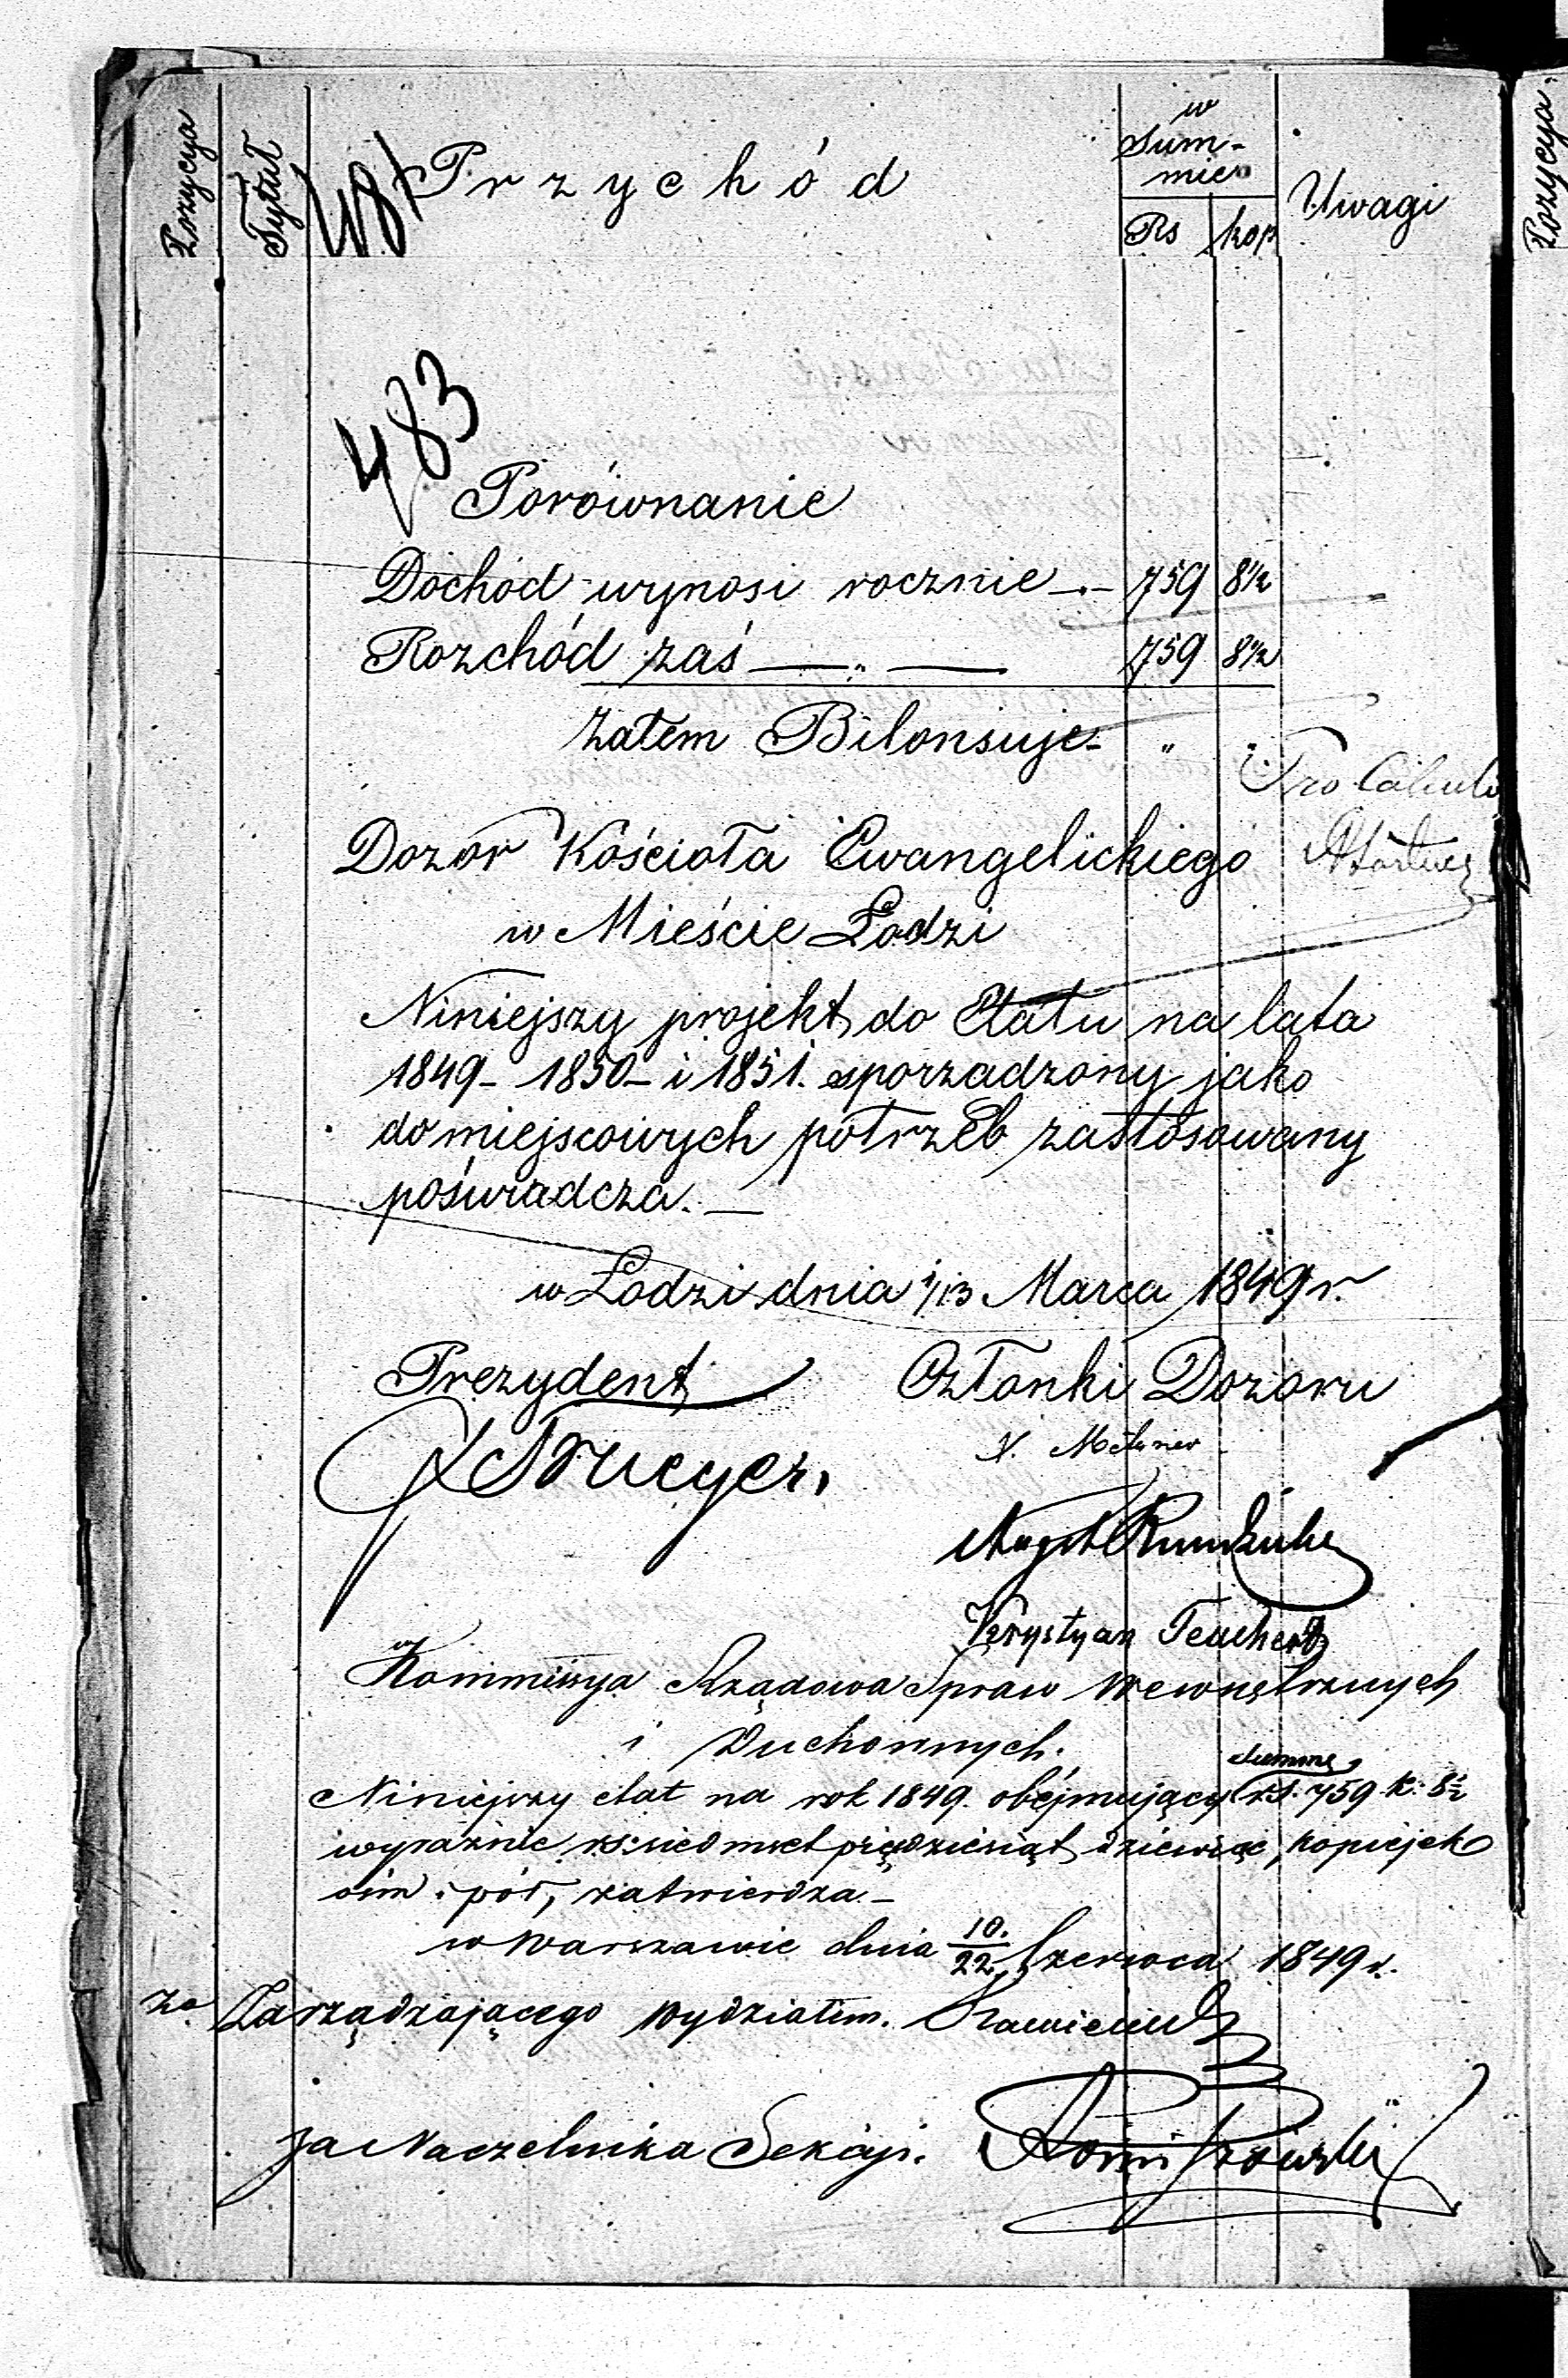 Pozycya Tytuł 481 Przychód w Summie Rs kop Uwagi Pozycya
483
Porównanie
Dochód wynosi rocznie 759 8 1/2
Rozchód zaś — „ — 759 8 1/2
zatem Bilonsuje - „ „
Pro Calculo
Dozór Kościoła Ewangelickiego
w Mieście Łodzi
Niniejszy projekt do Etatu na lata
1849 - 1850 - i 1851. sporządzony jako
do miejscowych potrzeb zastosowany
poświadcza. —
w Łodzi dnia 1/13 Marca 1849 r.
Prezydent Członki Dozoru
Traeger.
August
Krystyan Teuchert
Kommissya Rządowa Spraw Wewnętrznych
i Duchownych.
Niniejszy etat na rok 1849. obejmujący summę rs. 759 k: 8 1/2
wyraźnie rs: siedmset pięśdziesiąt dziewięć, kopiejek
ośm i pół, zatwierdza -
w Warszawie dnia 10./22 Czerwca 1849 r.
Za Zarządzającego Wydziałem.
za Naczelnika Sekcyi.